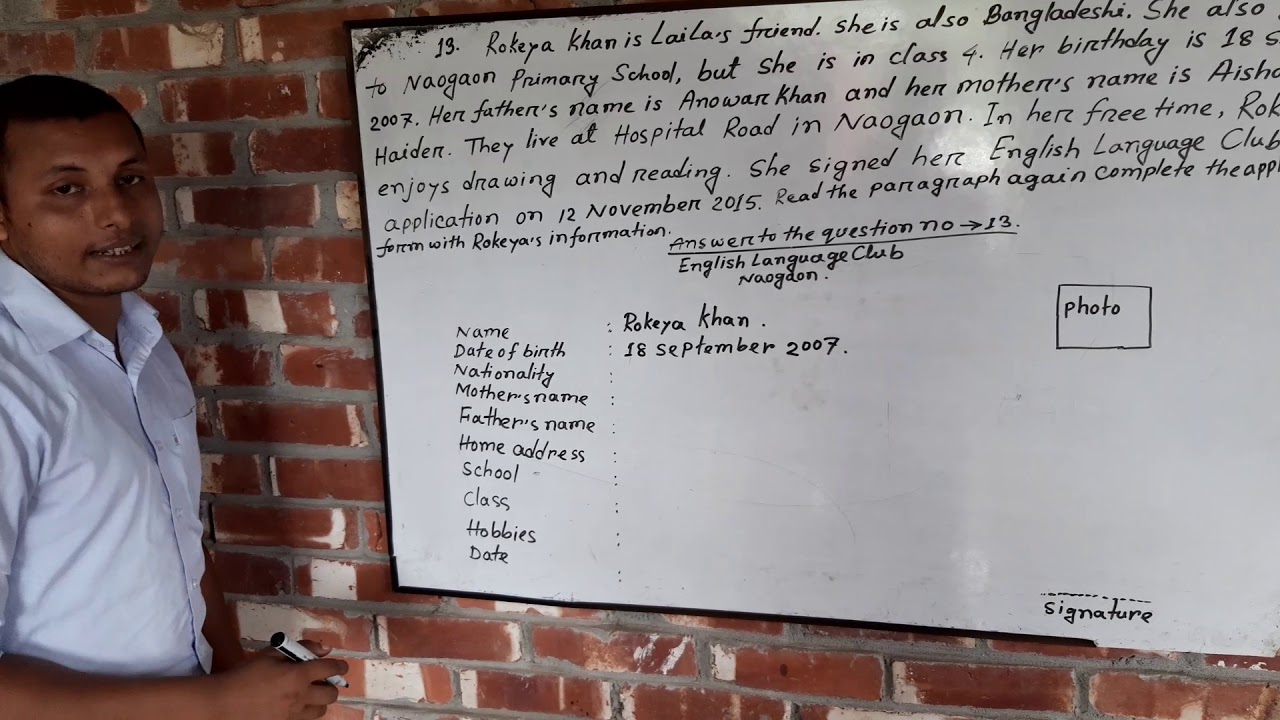 13. Rokeya Khan is Laila's friend. She is also Bangladeshi. She also
to Naogaon Primary School, but she is in class 4. Her birthday is 18 S
2007. Her father's name is Anowar Khan and her mother's name is Aisha
Haider. They live at Hospital Road in Naogaon. In her free time, Rok
enjoys drawing and reading. She signed her English Language Club
application on 12 November 2015. Read the paragraph again complete the appl
form with Rokeya's information.
Answer to the question no → 13.
English Language Club
Naogaon.
photo
Name : Rokeya Khan.
Date of birth : 18 September 2007.
Nationality :
Mother's name :
Father's name :
Home address :
School :
Class :
Hobbies :
Date :
signature